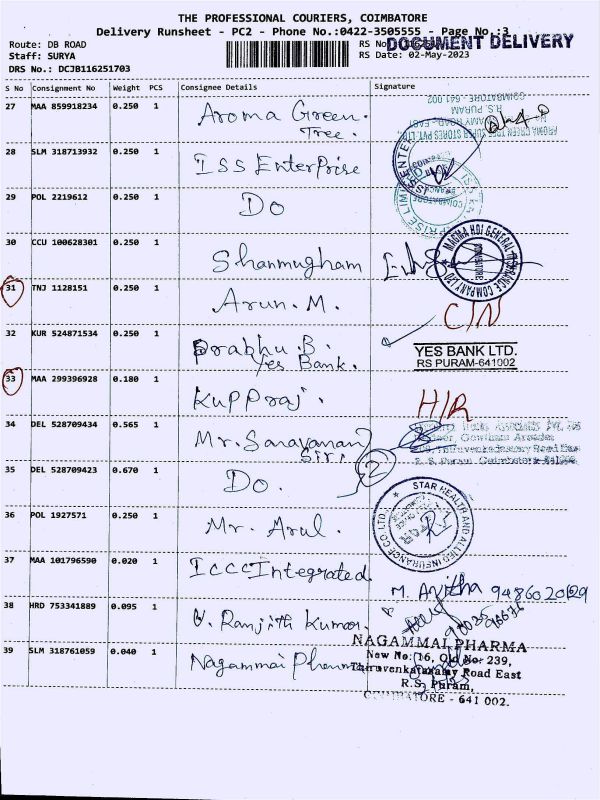 THE PROFESSIONAL COURIERS, COIMBATORE
Delivery Runsheet - PC2 - Phone No.:0422-3505555 - Page No.:3
DOCUMENT DELIVERY
Route: DB ROAD
RS No
Staff: SURYA
RS Date: 02-May-2023
DRS No.: DCJB116251703
S No Consignment No Weight PCS Consignee Details Signature
27 MAA 859918234 0.250 1 Aroma Green.
Tree.
AROMA GREEN TREE SUPER STORES PVT. LTD.,
R.S. PURAM
COIMBATORE - 641 002
28 SLM 318713932 0.250 1 ISS Enterprise
29 POL 2219612 0.250 1 Do
30 CCU 100628301 0.250 1 Shanmugham
MAGMA HDI GENERAL INSURANCE COMPANY LTD
COIMBATORE
31 TNJ 1128151 0.250 1 Arun. M.
C/N
32 KUR 524871534 0.250 1 Prabhu. B.
Yes Bank.
YES BANK LTD.
RS PURAM-641002
33 MAA 299396928 0.180 1 Kuppraj.
H/R
34 DEL 528709434 0.565 1 Mr. Saravanan
Siri
35 DEL 528709423 0.670 1 Do.
2
36 POL 1927571 0.250 1 Mr. Arul.
STAR HEALTH AND ALLIED INSURANCE CO LTD
37 MAA 101796590 0.020 1 ICCC Integrated
M. Anitha 9486020129
38 HRD 753341889 0.095 1 V. Ranjith Kumar.
39 SLM 318761059 0.040 1 Nagammai Pharma
NAGAMMAI PHARMA
New No: 16, Old No: 239,
Thiruvenkatasamy Road East
R.S. Puram,
COIMBATORE - 641 002.